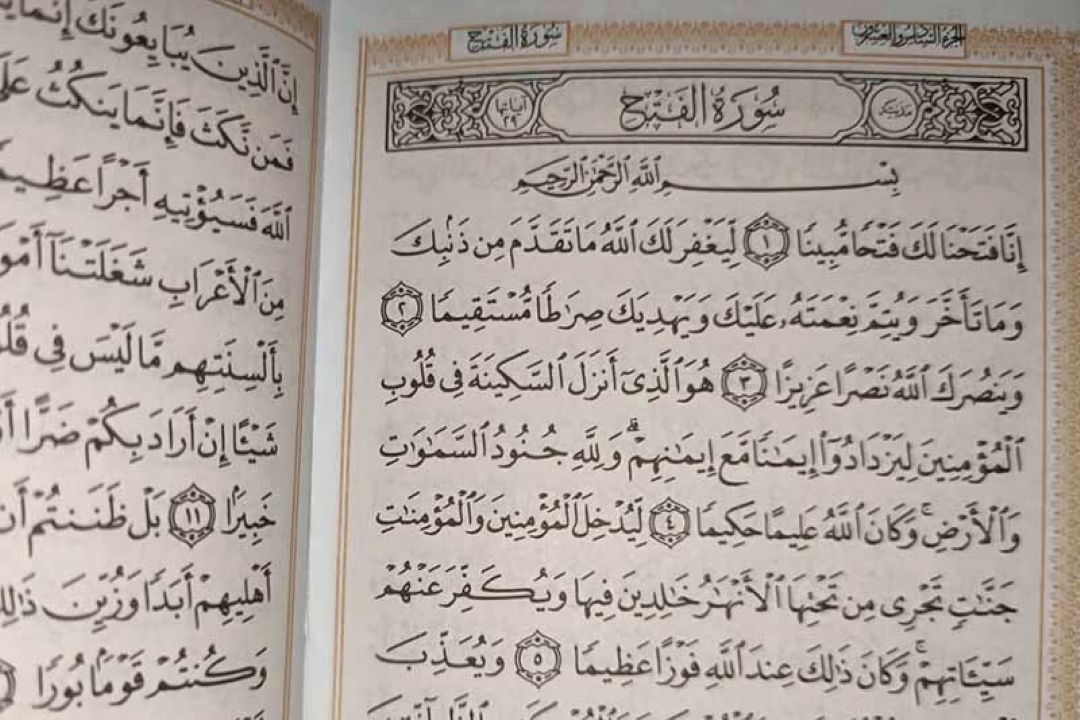 الجزء السادس والعشرون
سُورَةُ الفَتْحِ
مدنية
سُورَةُ الفَتْحِ
آياتها ٢٩
بِسْمِ ٱللَّهِ ٱلرَّحْمَٰنِ ٱلرَّحِيمِ
إِنَّا فَتَحْنَا لَكَ فَتْحًا مُّبِينًا ١ لِّيَغْفِرَ لَكَ ٱللَّهُ مَا تَقَدَّمَ مِن ذَنۢبِكَ
وَمَا تَأَخَّرَ وَيُتِمَّ نِعْمَتَهُۥ عَلَيْكَ وَيَهْدِيَكَ صِرَٰطًا مُّسْتَقِيمًا ٢
وَيَنصُرَكَ ٱللَّهُ نَصْرًا عَزِيزًا ٣ هُوَ ٱلَّذِىٓ أَنزَلَ ٱلسَّكِينَةَ فِى قُلُوبِ
ٱلْمُؤْمِنِينَ لِيَزْدَادُوٓا۟ إِيمَٰنًا مَّعَ إِيمَٰنِهِمْ ۗ وَلِلَّهِ جُنُودُ ٱلسَّمَٰوَٰتِ
وَٱلْأَرْضِ ۚ وَكَانَ ٱللَّهُ عَلِيمًا حَكِيمًا ٤ لِّيُدْخِلَ ٱلْمُؤْمِنِينَ وَٱلْمُؤْمِنَٰتِ
جَنَّٰتٍ تَجْرِى مِن تَحْتِهَا ٱلْأَنْهَٰرُ خَٰلِدِينَ فِيهَا وَيُكَفِّرَ عَنْهُمْ
سَيِّـَٔاتِهِمْ ۚ وَكَانَ ذَٰلِكَ عِندَ ٱللَّهِ فَوْزًا عَظِيمًا ٥ وَيُعَذِّبَ
إِنَّ ٱلَّذِينَ يُبَايِعُونَكَ إِنَّمَا
فَمَن نَّكَثَ فَإِنَّمَا يَنكُثُ عَلَىٰ
ٱللَّهَ فَسَيُؤْتِيهِ أَجْرًا عَظِيمًا
مِنَ ٱلْأَعْرَابِ شَغَلَتْنَآ
بِأَلْسِنَتِهِم مَّا لَيْسَ فِى
شَيْـًٔا إِنْ أَرَادَ بِكُمْ ضَرًّا
خَبِيرًۢا ١١ بَلْ ظَنَنتُمْ أَن
أَهْلِيهِمْ أَبَدًا وَزُيِّنَ
وَكُنتُمْ قَوْمًۢا بُورًا